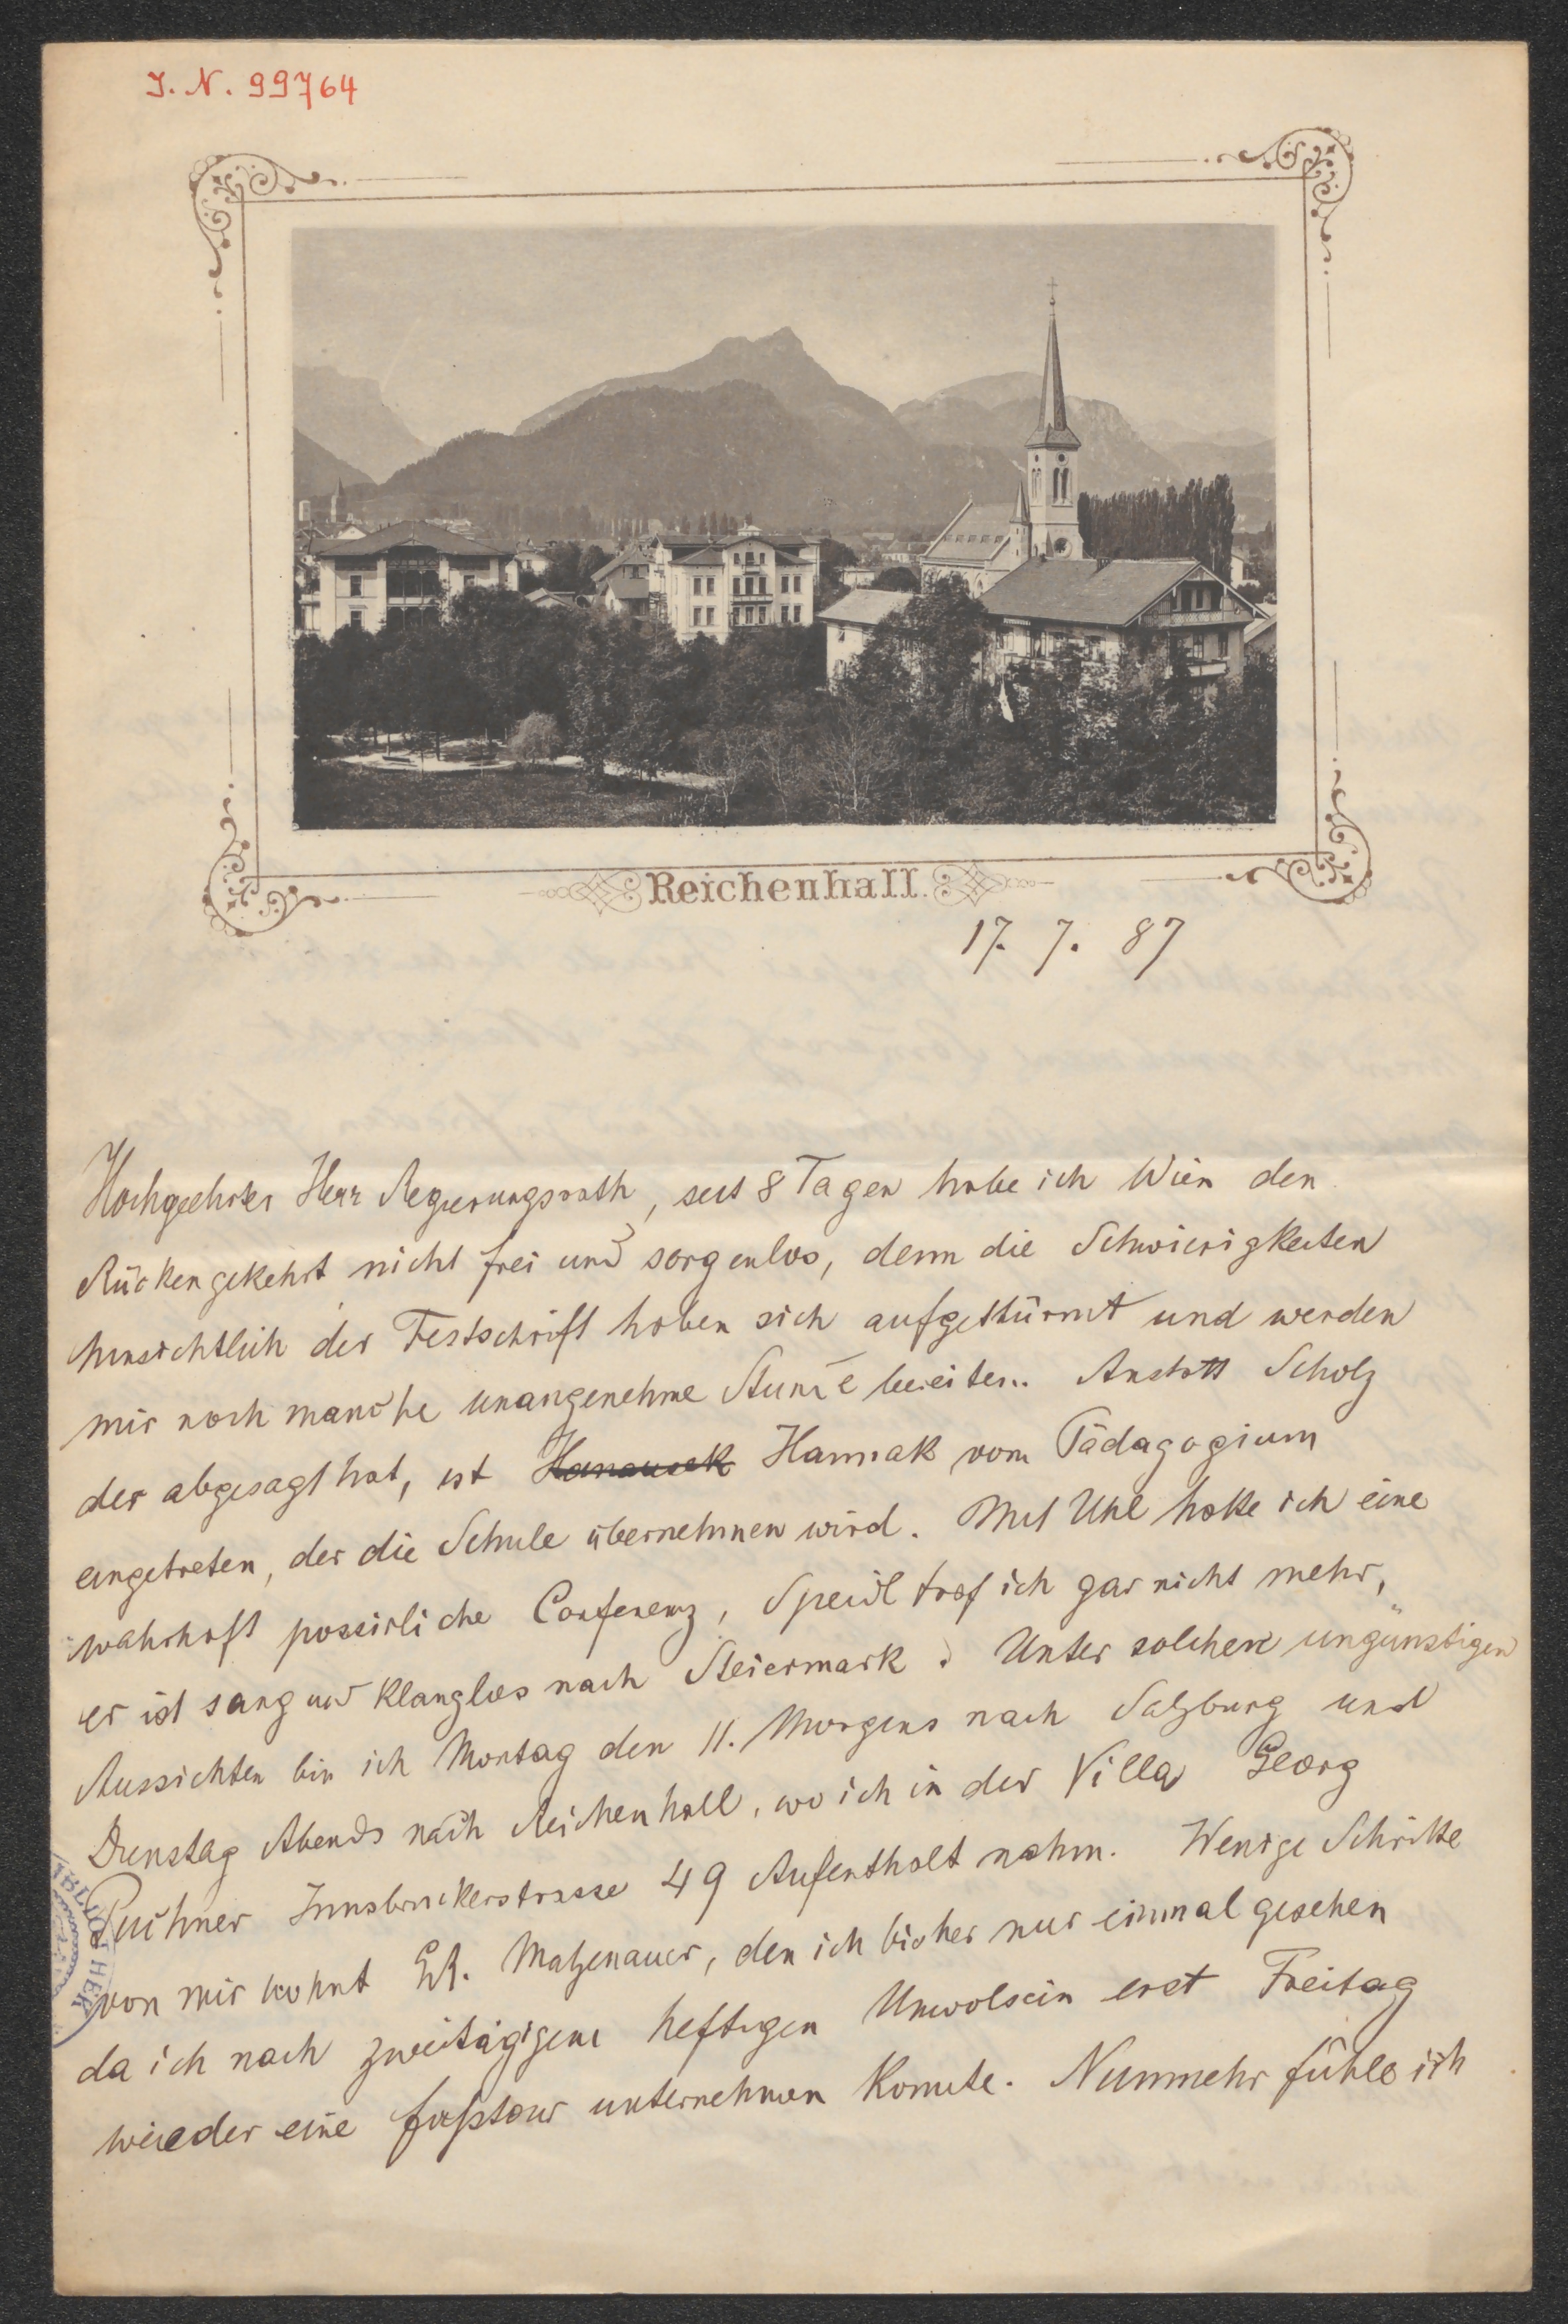 J. N. 99764
Reichenhall.
17. 7. 87
Hochgeehrter Herr Regierungsrath, seit 8 Tagen habe ich Wien den
Rücken gekehrt nicht frei und sorgenlos, denn die Schwierigkeiten
hinsichtlich der Festschrift haben sich aufgethürmt und werden
mir noch manche unangenehme Stunde bereiten. Anstatt Scholz
der abgesagt hat, ist Hanausek Hannak vom Pädagogium
eingetreten, der die Schule übernehmen wird. Mit Uhl hatte ich eine
wahrhaft possirliche Conferenz, Speidl traf ich gar nicht mehr,
er ist sang und klanglos nach Steiermark. Unter solchen ungünstigen
Aussichten bin ich Montag den 11. Morgens nach Salzburg und
Dienstag Abends nach Reichenhall, wo ich in der Villa Georg
Puchner Innsbruckerstrasse 49 Aufenthalt nahm. Wenige Schritte
von mir wohnt Matzenauer, den ich bisher nur einmal gesehen
da ich nach zweitägigem heftigen Unwolsein erst Freitag
wieder eine Fußtour unternehmen konnte. Nunmehr fühle ich